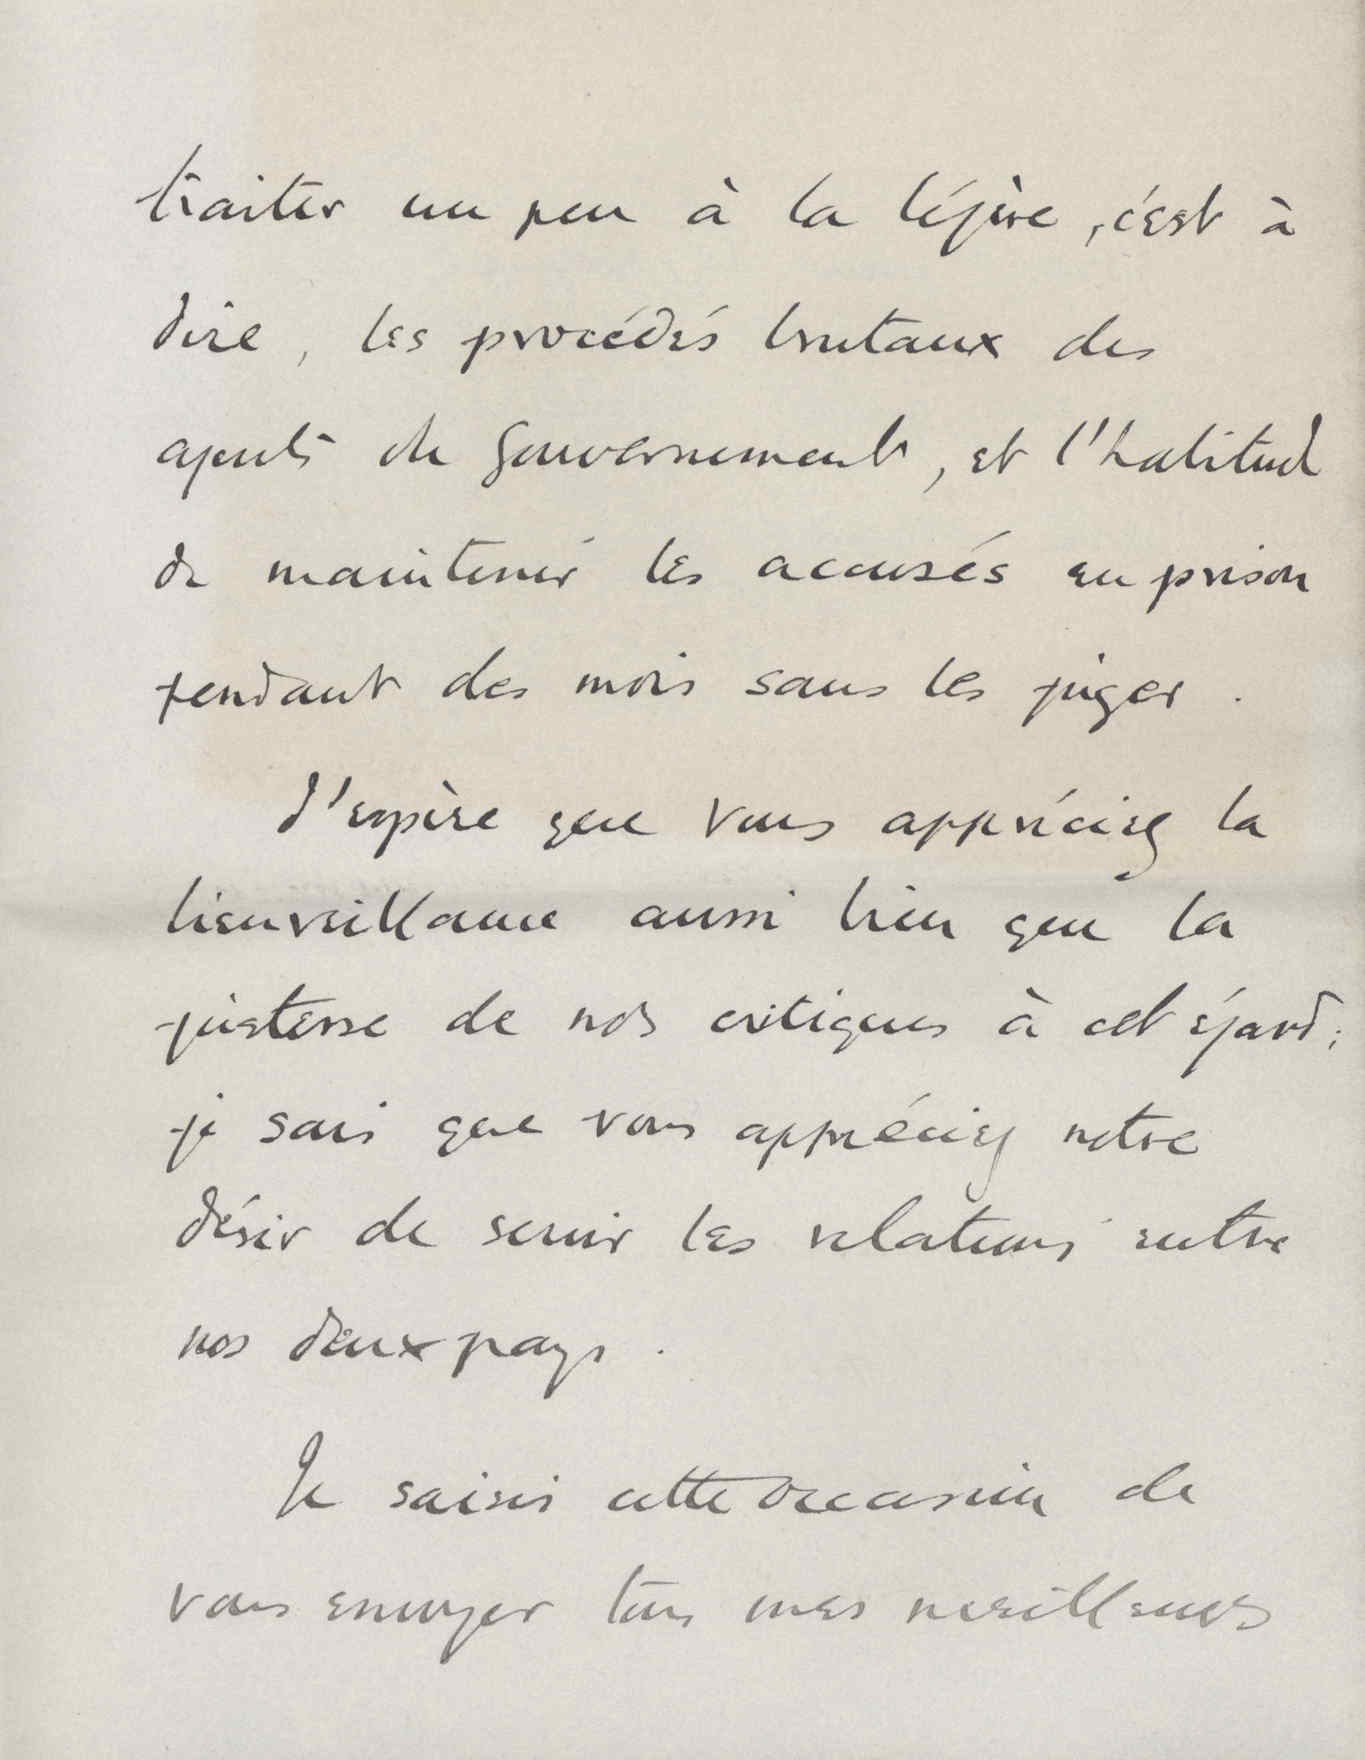 traiter un peu à la légère, c'est à
dire, les procédés brutaux des
agents du Gouvernement, et l'habitude
de maintenir les accusés en prison
pendant des mois sans les juger.
J'espère que vous appréciez la
bienveillance aussi bien que la
justesse de nos critiques à cet égard;
je sais que vous appréciez notre
désir de servir les relations entre
nos deux pays.
Je saisis cette occasion de
vous envoyer tous mes meilleurs